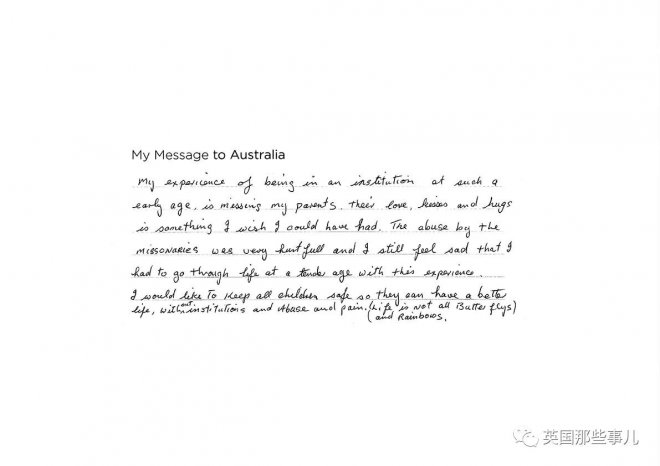 My Message to Australia
My experience of being in an institution at such a
early age, is missing my parents. Their love, kisses and hugs
is something I wish I could have had. The abuse by the
missonaries was very hurtfull and I still feel sad that I
had to go through life at a tender age with this experience.
I would like to keep all children safe so they can have a better
life, without institutions and Abuse and pain. (Life is not all Butter flys)
(and Rainbows.
英国那些事儿